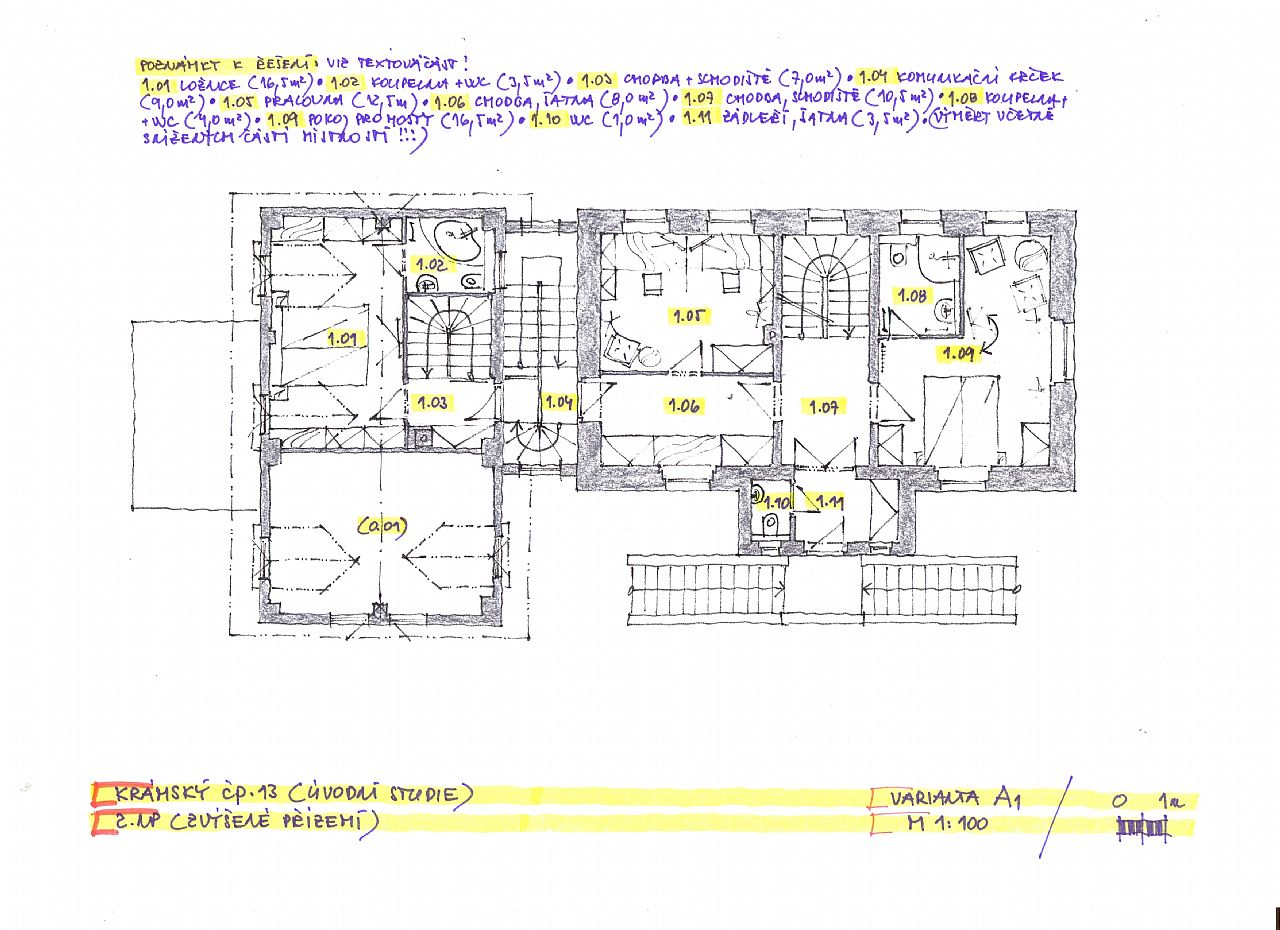 POZNÁMKY K ŘEŠENÍ: VIZ TEXTOVÁ ČÁST!
1.01 LOŽNICE (16,5m²) • 1.02 KOUPELNA + WC (3,5m²) • 1.03 CHODBA + SCHODIŠTĚ (7,0m²) • 1.04 KOMUNIKAČNÍ KRČEK
(9,0m²) • 1.05 PRACOVNA (12,5m) • 1.06 CHODBA, ŠATNA (8,0m²) • 1.07 CHODBA, SCHODIŠTĚ (10,5m²) • 1.08 KOUPELNA +
+ WC (4,0m²) • 1.09 POKOJ PRO HOSTY (16,5m²) • 1.10 WC (1,0m²) • 1.11 ZÁDVEŘÍ, ŠATNA (3,5m²) • (VÝMĚRY VČETNĚ
SNÍŽENÝCH ČÁSTÍ MÍSTNOSTÍ !!!)
1.02
1.08
1.05
1.01
1.09
1.03
1.04
1.06
1.07
1.10
1.11
(0.01)
KRÁMSKÝ ČP.13 (ÚVODNÍ STUDIE)
VARIANTA A1
0 1m
2.NP (ZVÝŠENÉ PŘÍZEMÍ)
M 1:100